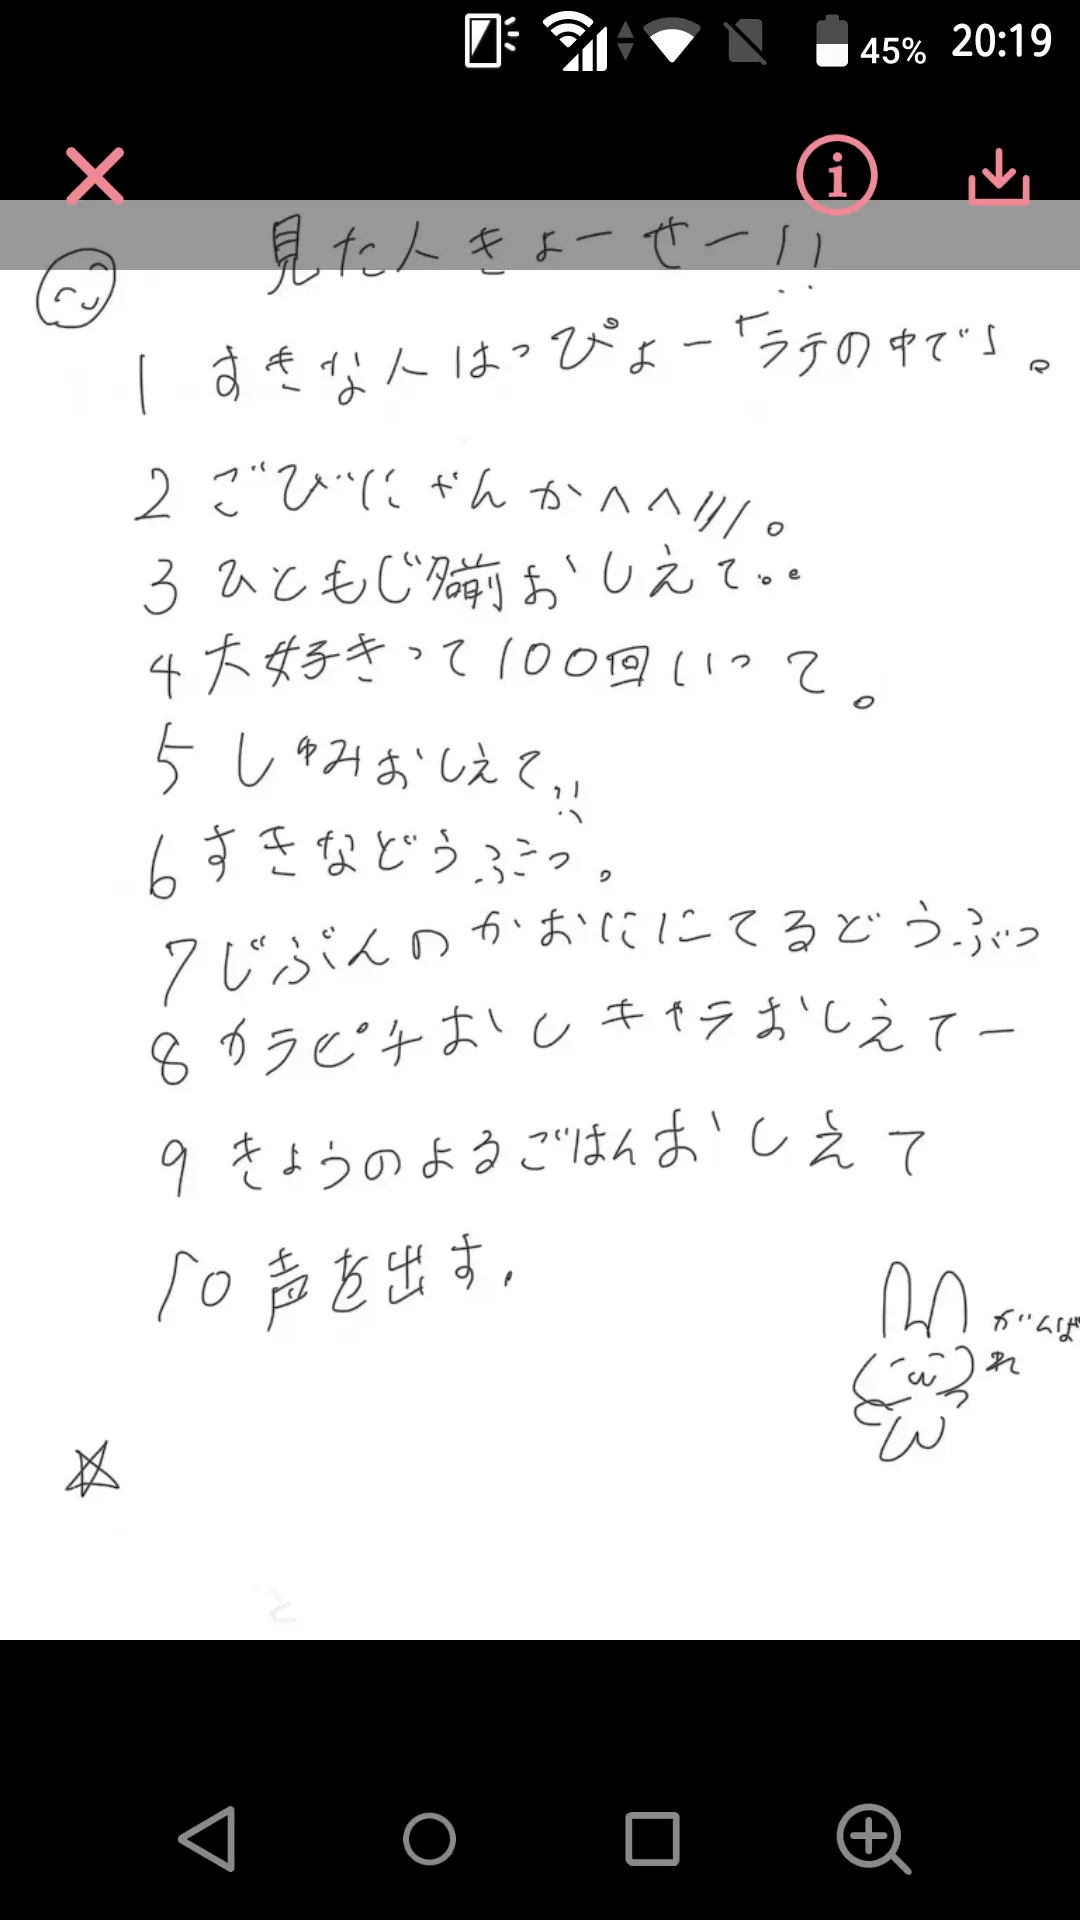 45% 20:19
i
見た人きょーせー!!
1 すきな人はっぴょー「ラテの中で」。
2 ごびにゃんかへへ///。
3 ひともじ名前おしえて。。
4 大好きって100回いって。
5 しゅみおしえて!!
6 すきなどうぶつ。
7 じぶんのかおににてるどうぶつ
8 カラピチおしキャラおしえてー
9 きょうのよるごはんおしえて
10 声を出す.
がんば
れ
と